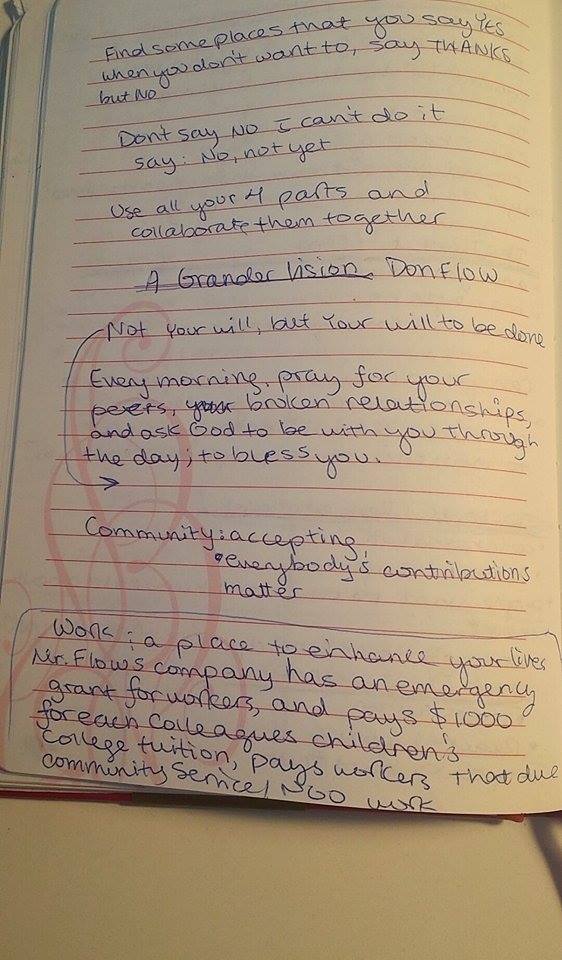 Find some places that you say YES
when you don't want to, say THANKS
but NO
Don't say NO I can't do it
say: No, not yet
Use all your 4 parts and
collaborate them together
A Grander Vision Don Flow
Not Your will, but Your will to be done
Every morning, pray for your
peers, your broken relationships,
and ask God to be with you through
the day; to bless you.
Community: accepting
• everybody's contributions
matter
Work: a place to enhance your lives
Mr. Flows company has an emergency
grant for workers, and pays $1000
for each colleagues children's
college tuition, pays workers that due
community service/NGO work